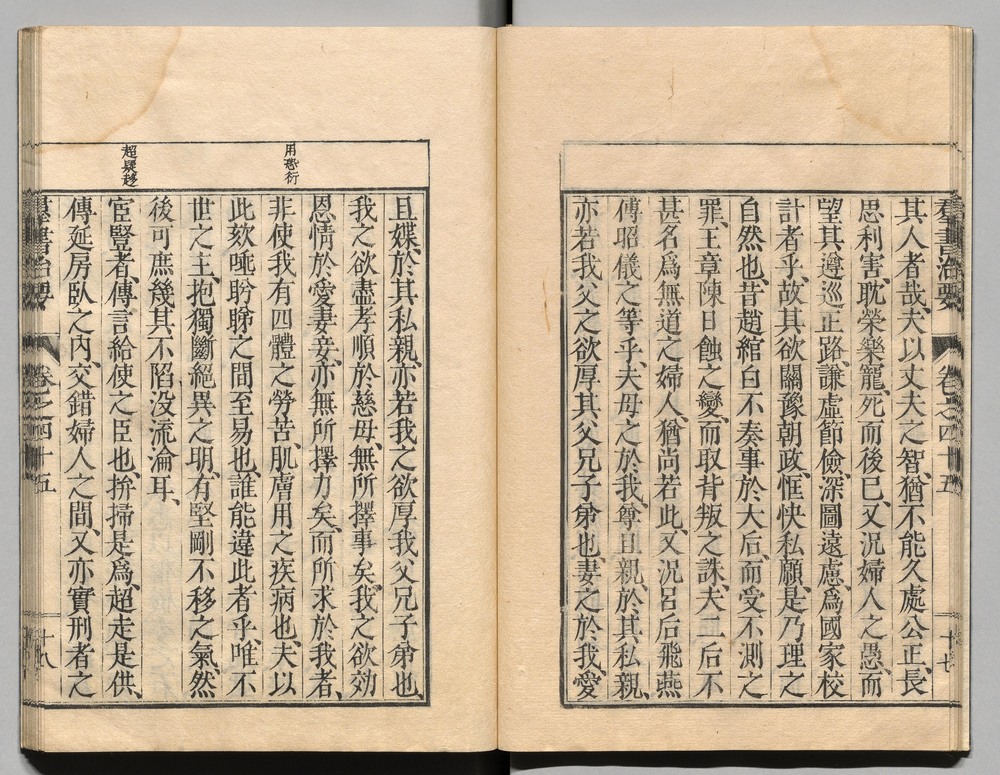 羣書治要 卷之四十五 十七
其人者哉、夫以丈夫之智、猶不能久處公正、長
思利害、耽榮樂寵、死而後已、又況婦人之愚、而
望其遵巡正路、謙虛節儉、深圖遠慮、爲國家校
計者乎、故其欲關豫朝政、愜快私願、是乃理之
自然也、昔趙綰白不奏事於大后、而受不測之
罪、王章陳日蝕之變、而取背叛之誅、夫二后不
甚名爲無道之婦人、猶尚若此、又況呂后飛燕
傅昭儀之等乎、夫母之於我、尊且親、於其私親、
亦若我父之欲厚其父兄子弟也、妻之於我、愛
且媟、於其私親、亦若我之欲厚我父兄子弟也、
我之欲盡孝順於慈母、無所擇事矣、我之欲効
恩情於愛妻妾、亦無所擇力矣、而所求於我者、
用恐衍
非使我有四體之勞苦、肌膚用之疾病也、夫以
此欬唾盻睇之間、至易也、誰能違此者乎、唯不
世之主、抱獨斷絕異之明、有堅剛不移之氣、然
後可庶幾其不陷沒流淪耳、
超疑趍
宦豎者、傳言給使之臣也、拚掃是爲、超走是供、
傳延房臥之內、交錯婦人之間、又亦實刑者之
羣書治要 卷之四十五 十八